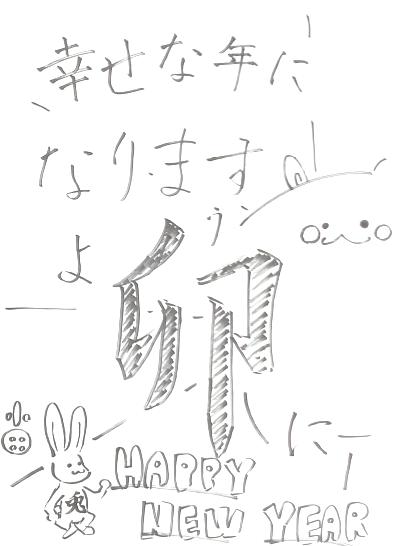 幸せな年に
なります
よう
卯
に
HAPPY
NEW YEAR